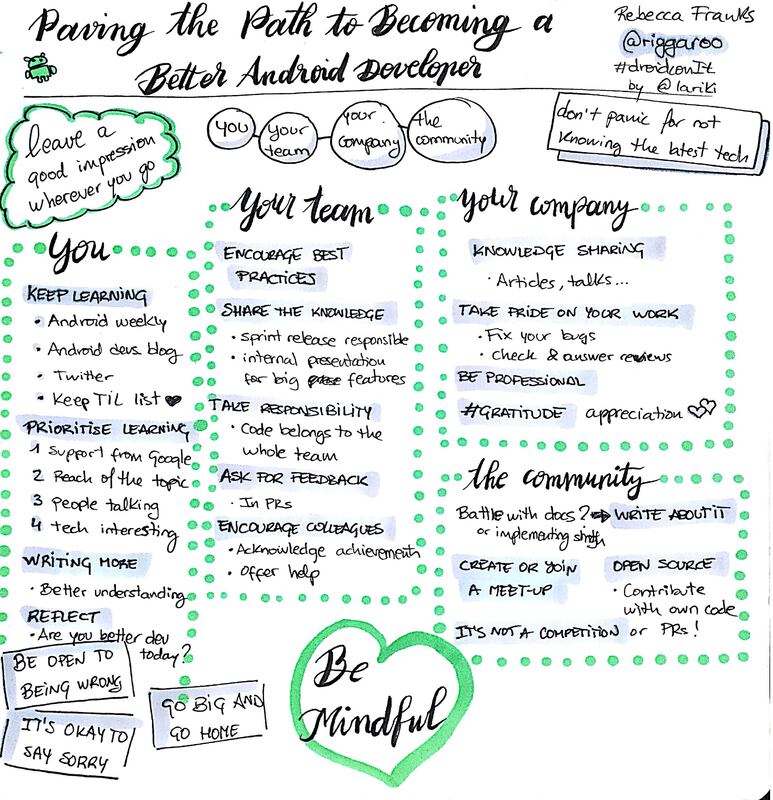 Paving the Path to Becoming a
Better Android Developer
Rebecca Franks
@riggaroo
#droidconIt
by @lariki
leave a
good impression
wherever you go
you
your
team
your
company
the
community
don't panic for not
knowing the latest tech
You
KEEP LEARNING
• Android weekly
• Android devs blog
• Twitter
• Keep TIL list
PRIORITISE LEARNING
1 Support from Google
2 Reach of the topic
3 people talking
4 tech interesting
WRITING MORE
• Better understanding
REFLECT
• Are you better dev
today?
BE OPEN TO
BEING WRONG
IT'S OKAY TO
SAY SORRY
GO BIG AND
GO HOME
Your team
ENCOURAGE BEST
PRACTICES
SHARE THE KNOWLEDGE
• sprint release responsible
• internal presentation
for big features
TAKE RESPONSIBILITY
• Code belongs to the
whole team
ASK FOR FEEDBACK
• In PRs
ENCOURAGE COLLEAGUES
• Acknowledge achievements
• Offer help
Your company
KNOWLEDGE SHARING
• Articles, talks...
TAKE PRIDE ON YOUR WORK
• Fix your bugs
• check & answer reviews
BE PROFESSIONAL
#GRATITUDE appreciation
the community
Battle with docs? ⇒ WRITE ABOUT IT
or implementing
CREATE OR JOIN
A MEET-UP
OPEN SOURCE
• Contribute
with own code
or PRs!
IT'S NOT A COMPETITION
Be
Mindful